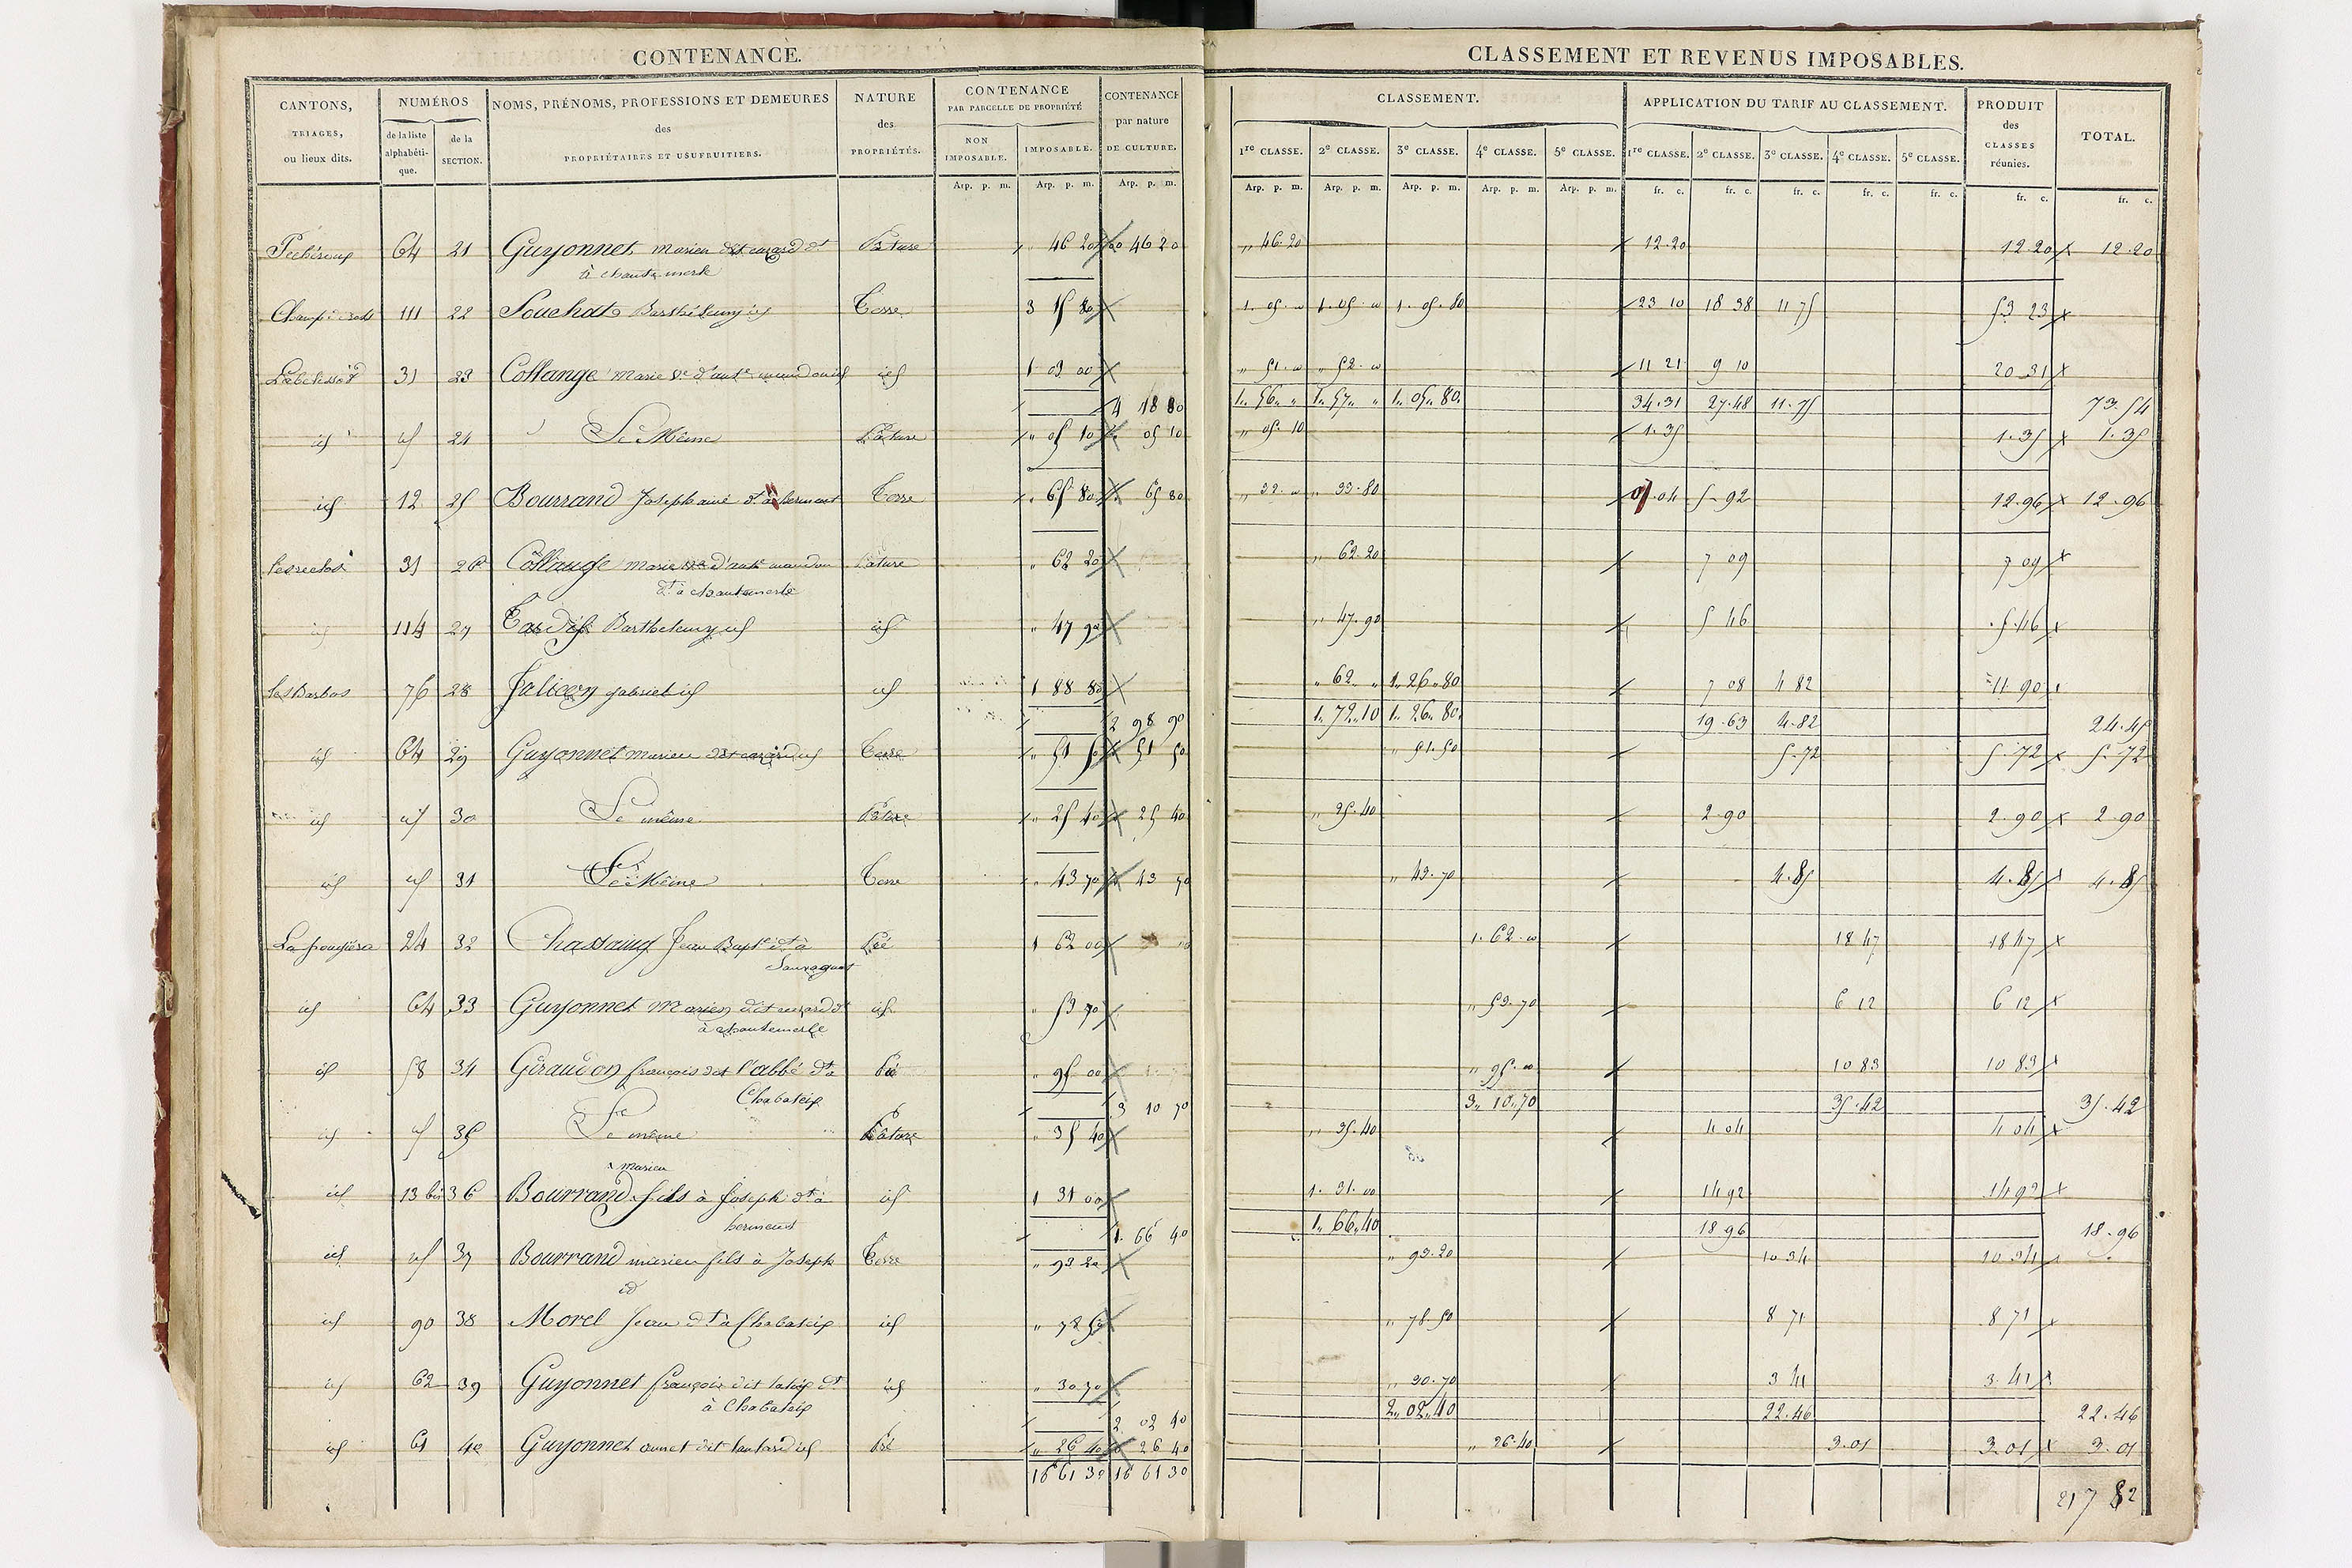 CONTENANCE.
CLASSEMENT ET REVENUS IMPOSABLES.
CANTONS, TRIAGES, ou lieux dits.
NUMÉROS
de la liste alphabétique.
de la SECTION.
NOMS, PRÉNOMS, PROFESSIONS ET DEMEURES
des
PROPRIÉTAIRES ET USUFRUITIERS.
NATURE des PROPRIÉTÉS.
CONTENANCE PAR PARCELLE DE PROPRIÉTÉ
NON IMPOSABLE.
IMPOSABLE.
CONTENANCE par nature DE CULTURE.
CLASSEMENT.
1re CLASSE. 2e CLASSE. 3e CLASSE. 4e CLASSE. 5e CLASSE.
APPLICATION DU TARIF AU CLASSEMENT.
1re CLASSE. 2e CLASSE. 3e CLASSE. 4e CLASSE. 5e CLASSE.
PRODUIT des CLASSES réunies.
TOTAL.
Arp. p. m. Arp. p. m. Arp. p. m. Arp. p. m. Arp. p. m. Arp. p. m. Arp. p. m. Arp. p. m. fr. c. fr. c. fr. c. fr. c. fr. c. fr. c. fr. c.
64 21 Guyonnet marien dit dt Pature " 46 20 46 20 " 46.20 12.20 12.20 12.20
à chantemerle
111 22 Souchat Barthélemy id Terre 3 15 80 1. 05. 1. 05. 1. 05. 80 23 10 18 38 11 75 53 23
31 23 Collange marie id 1 03 00 " 51. " 52. 11 21 9 10 20 31
4 18 80 1. 56. " 1. 57. " 1. 05. 80 34.31 27.48 11.75 73.54
id id 24 Le Même Pature " 05 10 05 10 " 05. 10 1.35 1.35 1.35
id 12 25 Bourrand Joseph ainé dt à herment Terre " 65 80 65 80 " 32. " 33.80 04 5.92 12.96 12.96
31 26 Collange marie Pature " 62 20 " 62.20 7 09 7 09
dt à chantemerle
id 114 27 Tardif Barthelemy id id " 47 90 " 47.90 5 46 5.46
les Barbos 76 28 Jalicon gabriel id id 1 88 80 " 62. " 1. 26. 80 7 08 4 82 11 90
2 98 90 1. 72. 10 1. 26. 80 19.63 4.82 24.45
id 64 29 Guyonnet marien dit id Terre " 51 50 51 50 " 51.50 5.72 5.72 5.72
id id 30 Le même Pature " 25 40 25 40 " 25.40 2.90 2.90 2.90
id id 31 Le Même Terre " 43 70 43 70 " 43.70 4.85 4.85 4.85
La fougiera 24 32 Chassaing Jean Bapte dt à Pré 1 62 00 1. 62. 18 47 18 47
Sauvagnat
id 64 33 Guyonnet Marien dit dt id " 53 70 " 53.70 6 12 6 12
à chantemerle
id 58 34 Giraudon françois dit l'abbé dt à Pré " 95 00 " 95. 10 83 10 83
Chabateix
3 10 70 3. 10. 70 35.42 35.42
id id 35 Le même Pâture " 35 40 " 35.40 4 04 4 04
marien
id 13 bis 36 Bourrand fils à Joseph dt à id 1 31 00 1. 31. 00 14 92 14 92
herment
1. 66 40 1. 66. 40 18 96 18.96
id id 37 Bourrand marien fils à Joseph Terre " 93 20 " 93.20 10 34 10 34
id
id 90 38 Morel Jean dt à Chabateix id " 78 50 " 78.50 8 71 8 71
id 62 39 Guyonnet françois dit dt id " 30.70 " 30.70 3 41 3.41
à Chabateix
2. 02 40 2. 02. 40 22.46 22.46
id 61 40 Guyonnet dit id Pré " 26 40 26 40 " 26.40 3.01 3.01 3.01
16 61 30 16 61 30
217 82